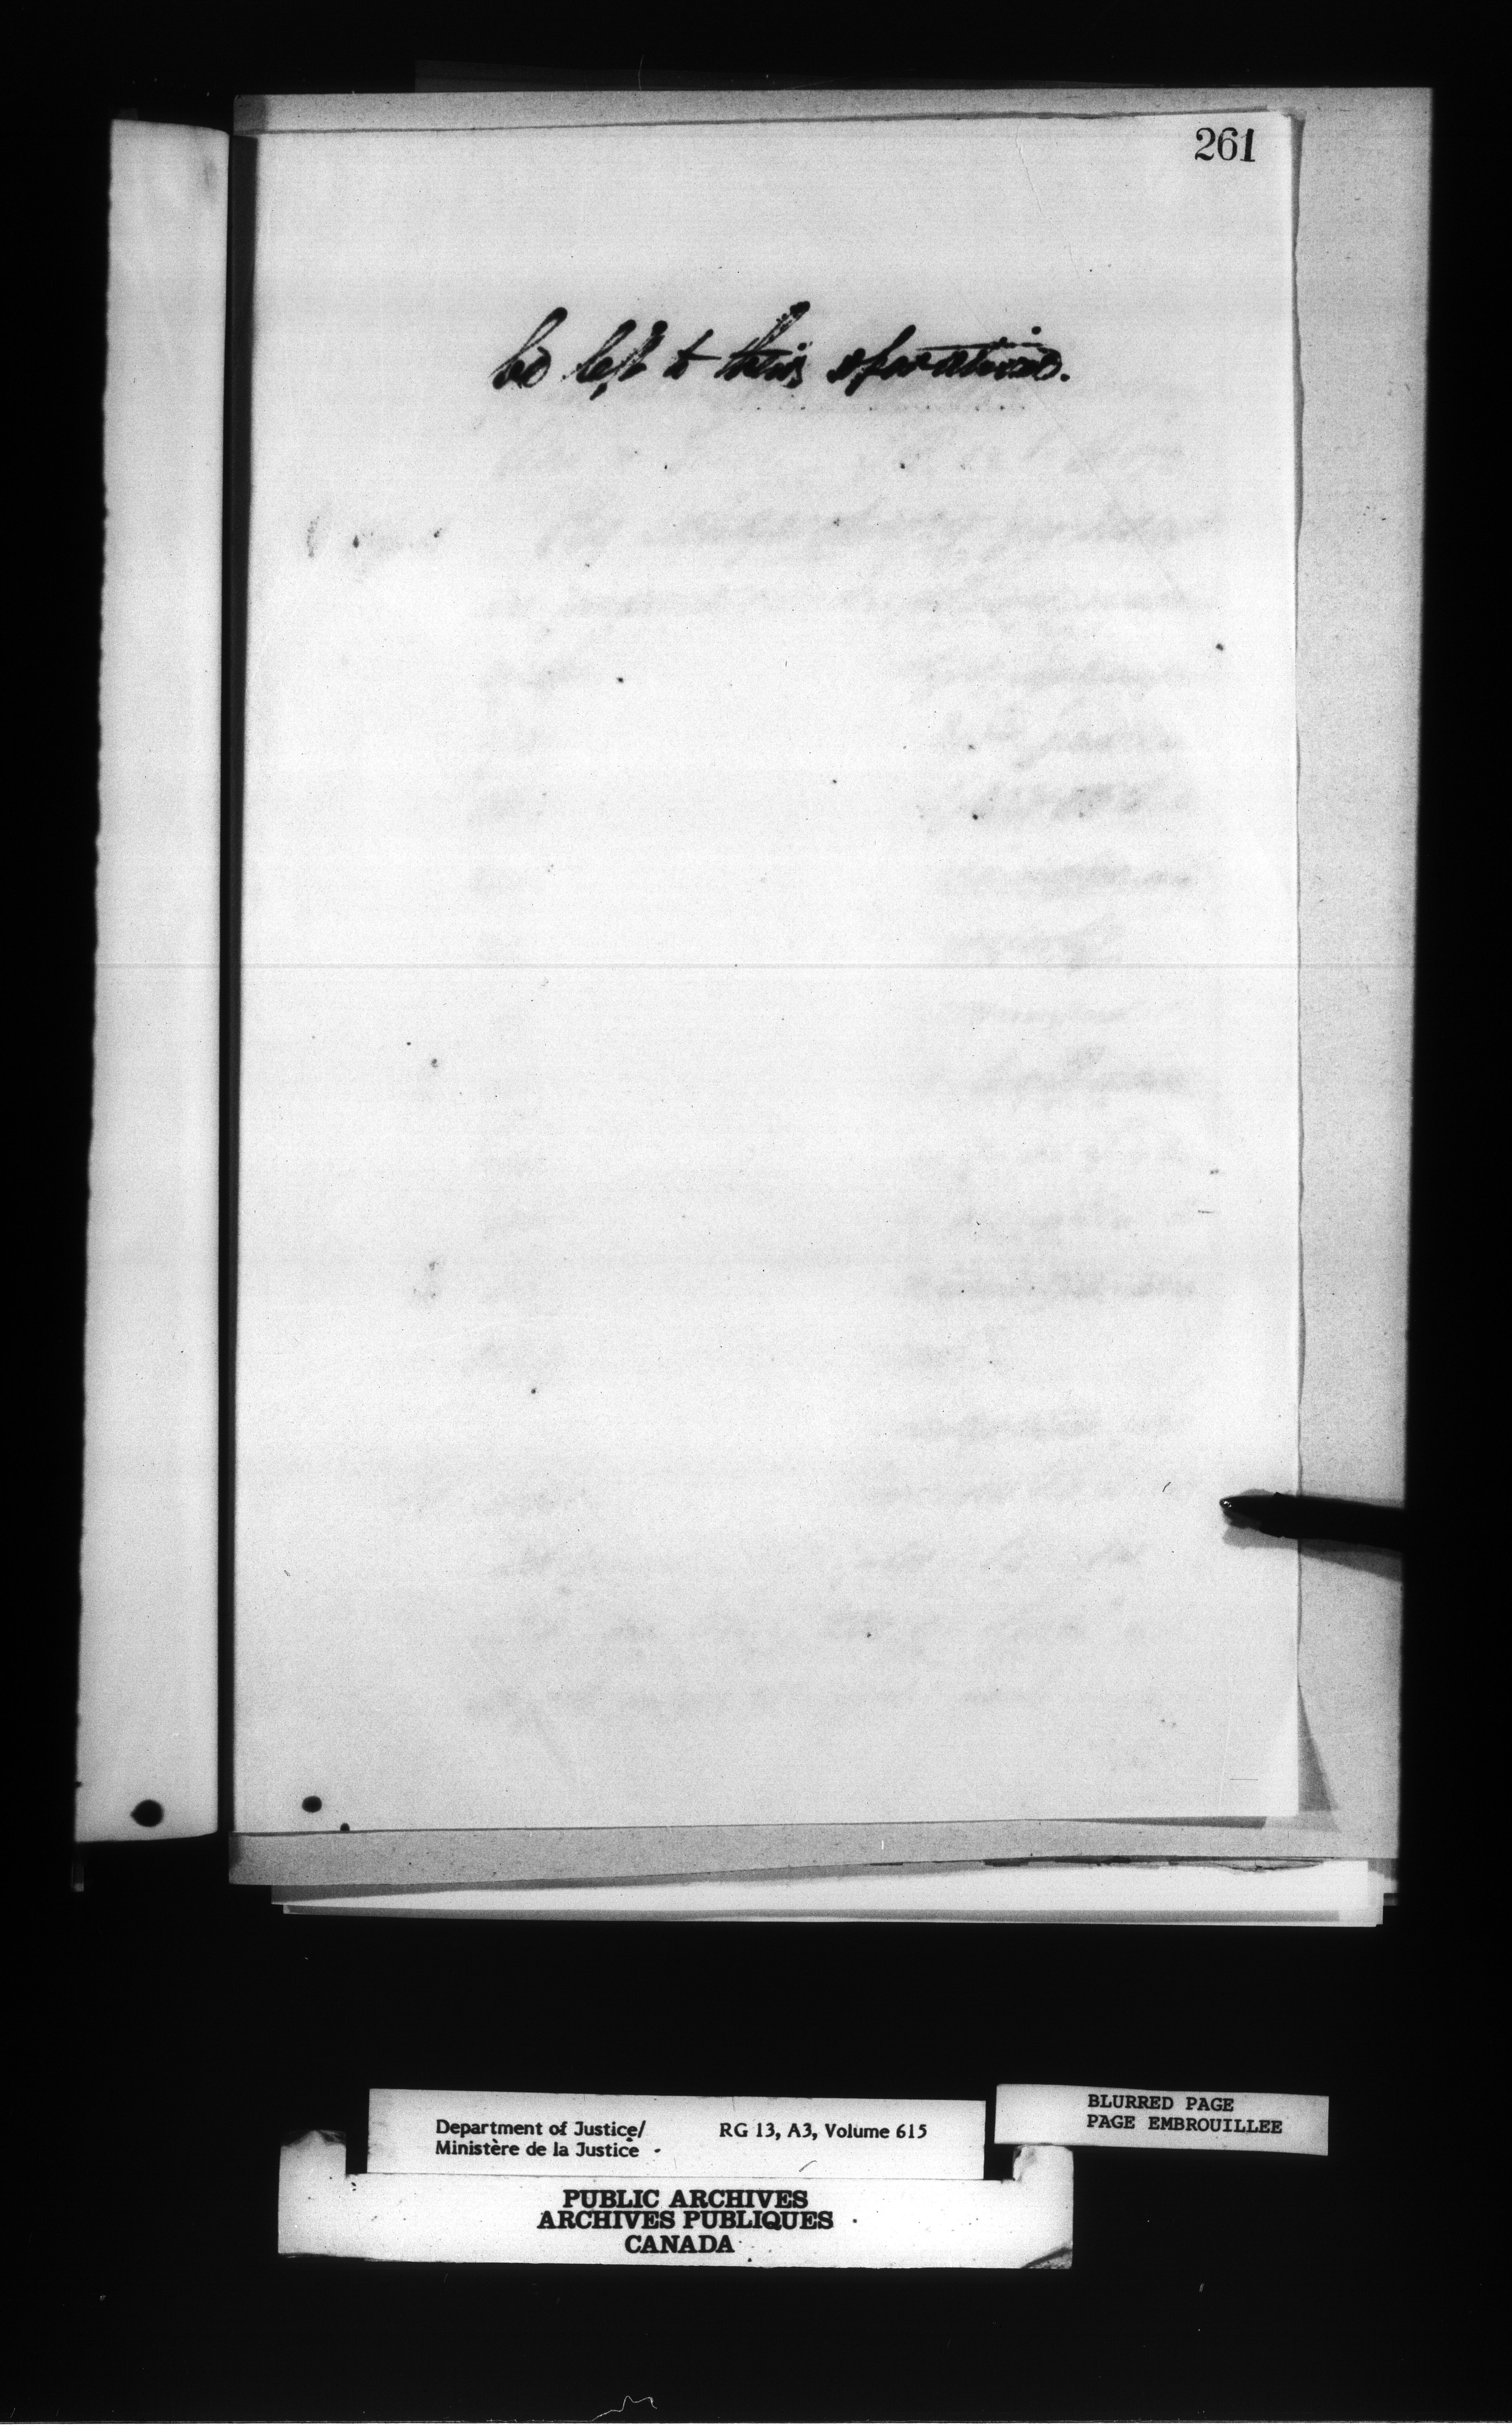 261
be left to their operation.
Department of Justice/ RG 13, A3, Volume 615
Ministère de la Justice
BLURRED PAGE
PAGE EMBROUILLEE
PUBLIC ARCHIVES
ARCHIVES PUBLIQUES
CANADA